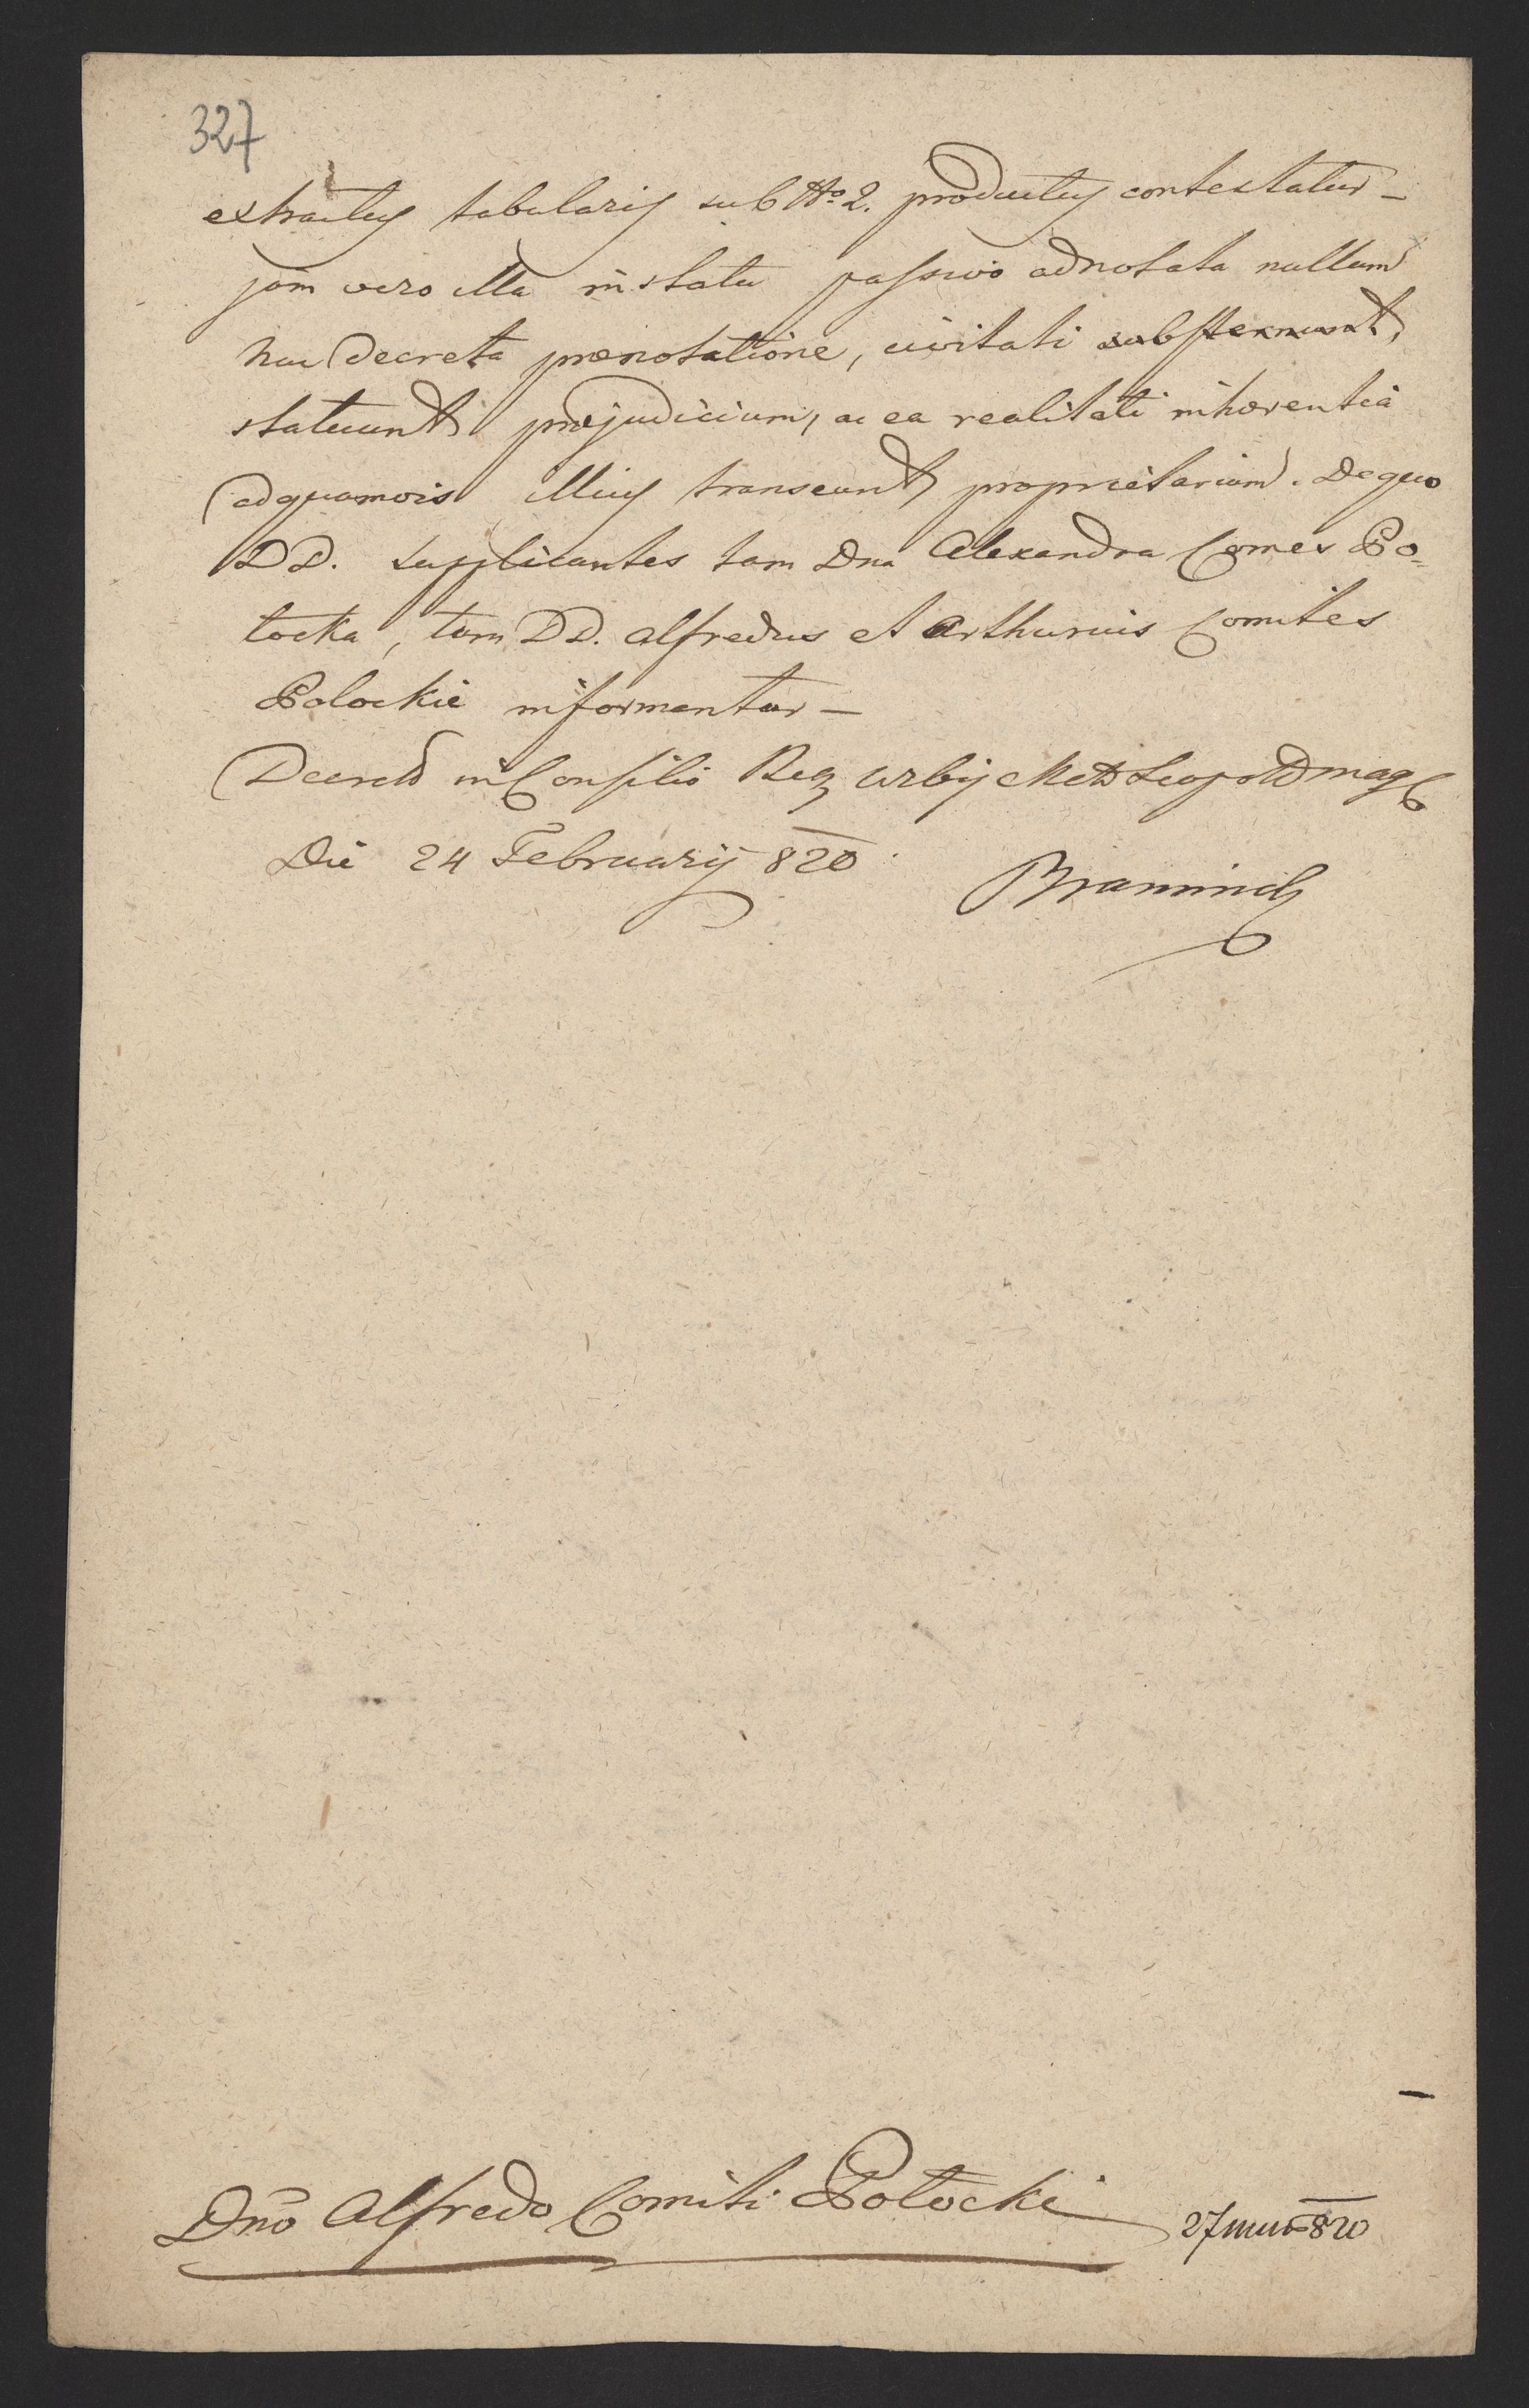 327
extractus tabularis sub No 2. productus contestatur –
jam vero illa in statu passivo adnotata nullum
hac decreta prænotatione, civitati substernunt,
statuunt præjudicium, ac ea realitati inhærentia
adquamvis illius transeunt proprietarium. De quo
DD. Supplicantes tam Dna Alexandra Comes Po=
tocka, tam DD. Alfredus et Arthurus Comites
Potockie informantur –
Decret in Consilio Reg Urbis Metr Leopold
Die 24 Februarij 820
Dno Alfredo Comiti Potocki
27 820